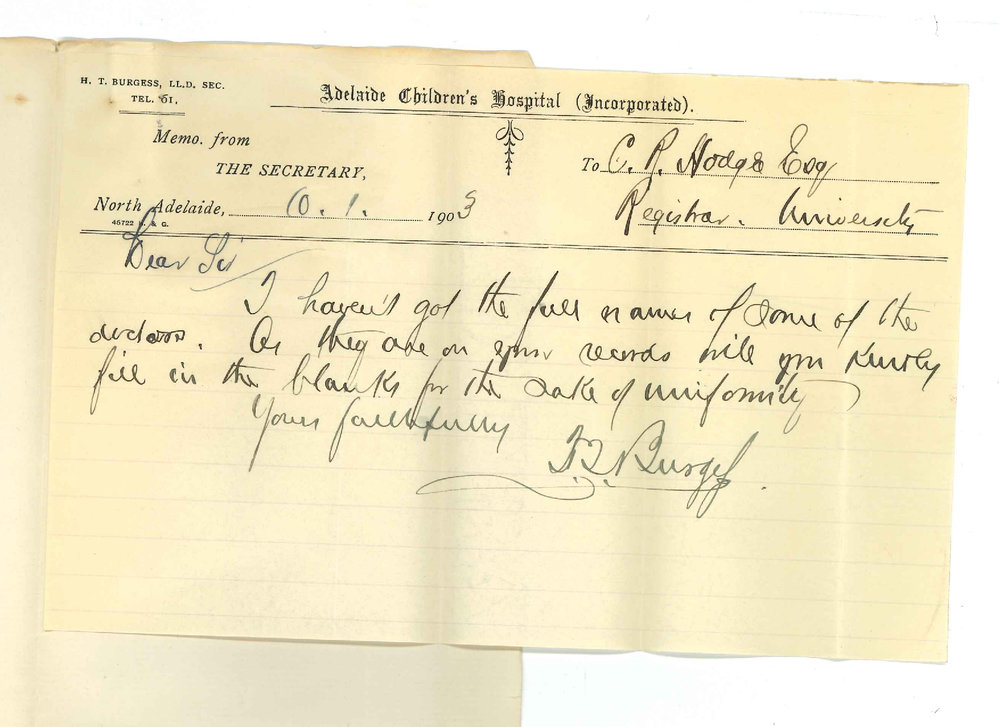 H. T. BURGESS, LL.D. SEC.
TEL. 61.
Adelaide Children's Hospital (Incorporated).
Memo. from
THE SECRETARY,
To C. R. Hodge Esq
North Adelaide, 10. 1. 1903
Registrar. University
46722 R. & G.
Dear Sir
I haven't got the full names of some of the
doctors. As they are on your records will you kindly
fill in the blanks for the sake of uniformity
Yours faithfully
H. T. Burgess